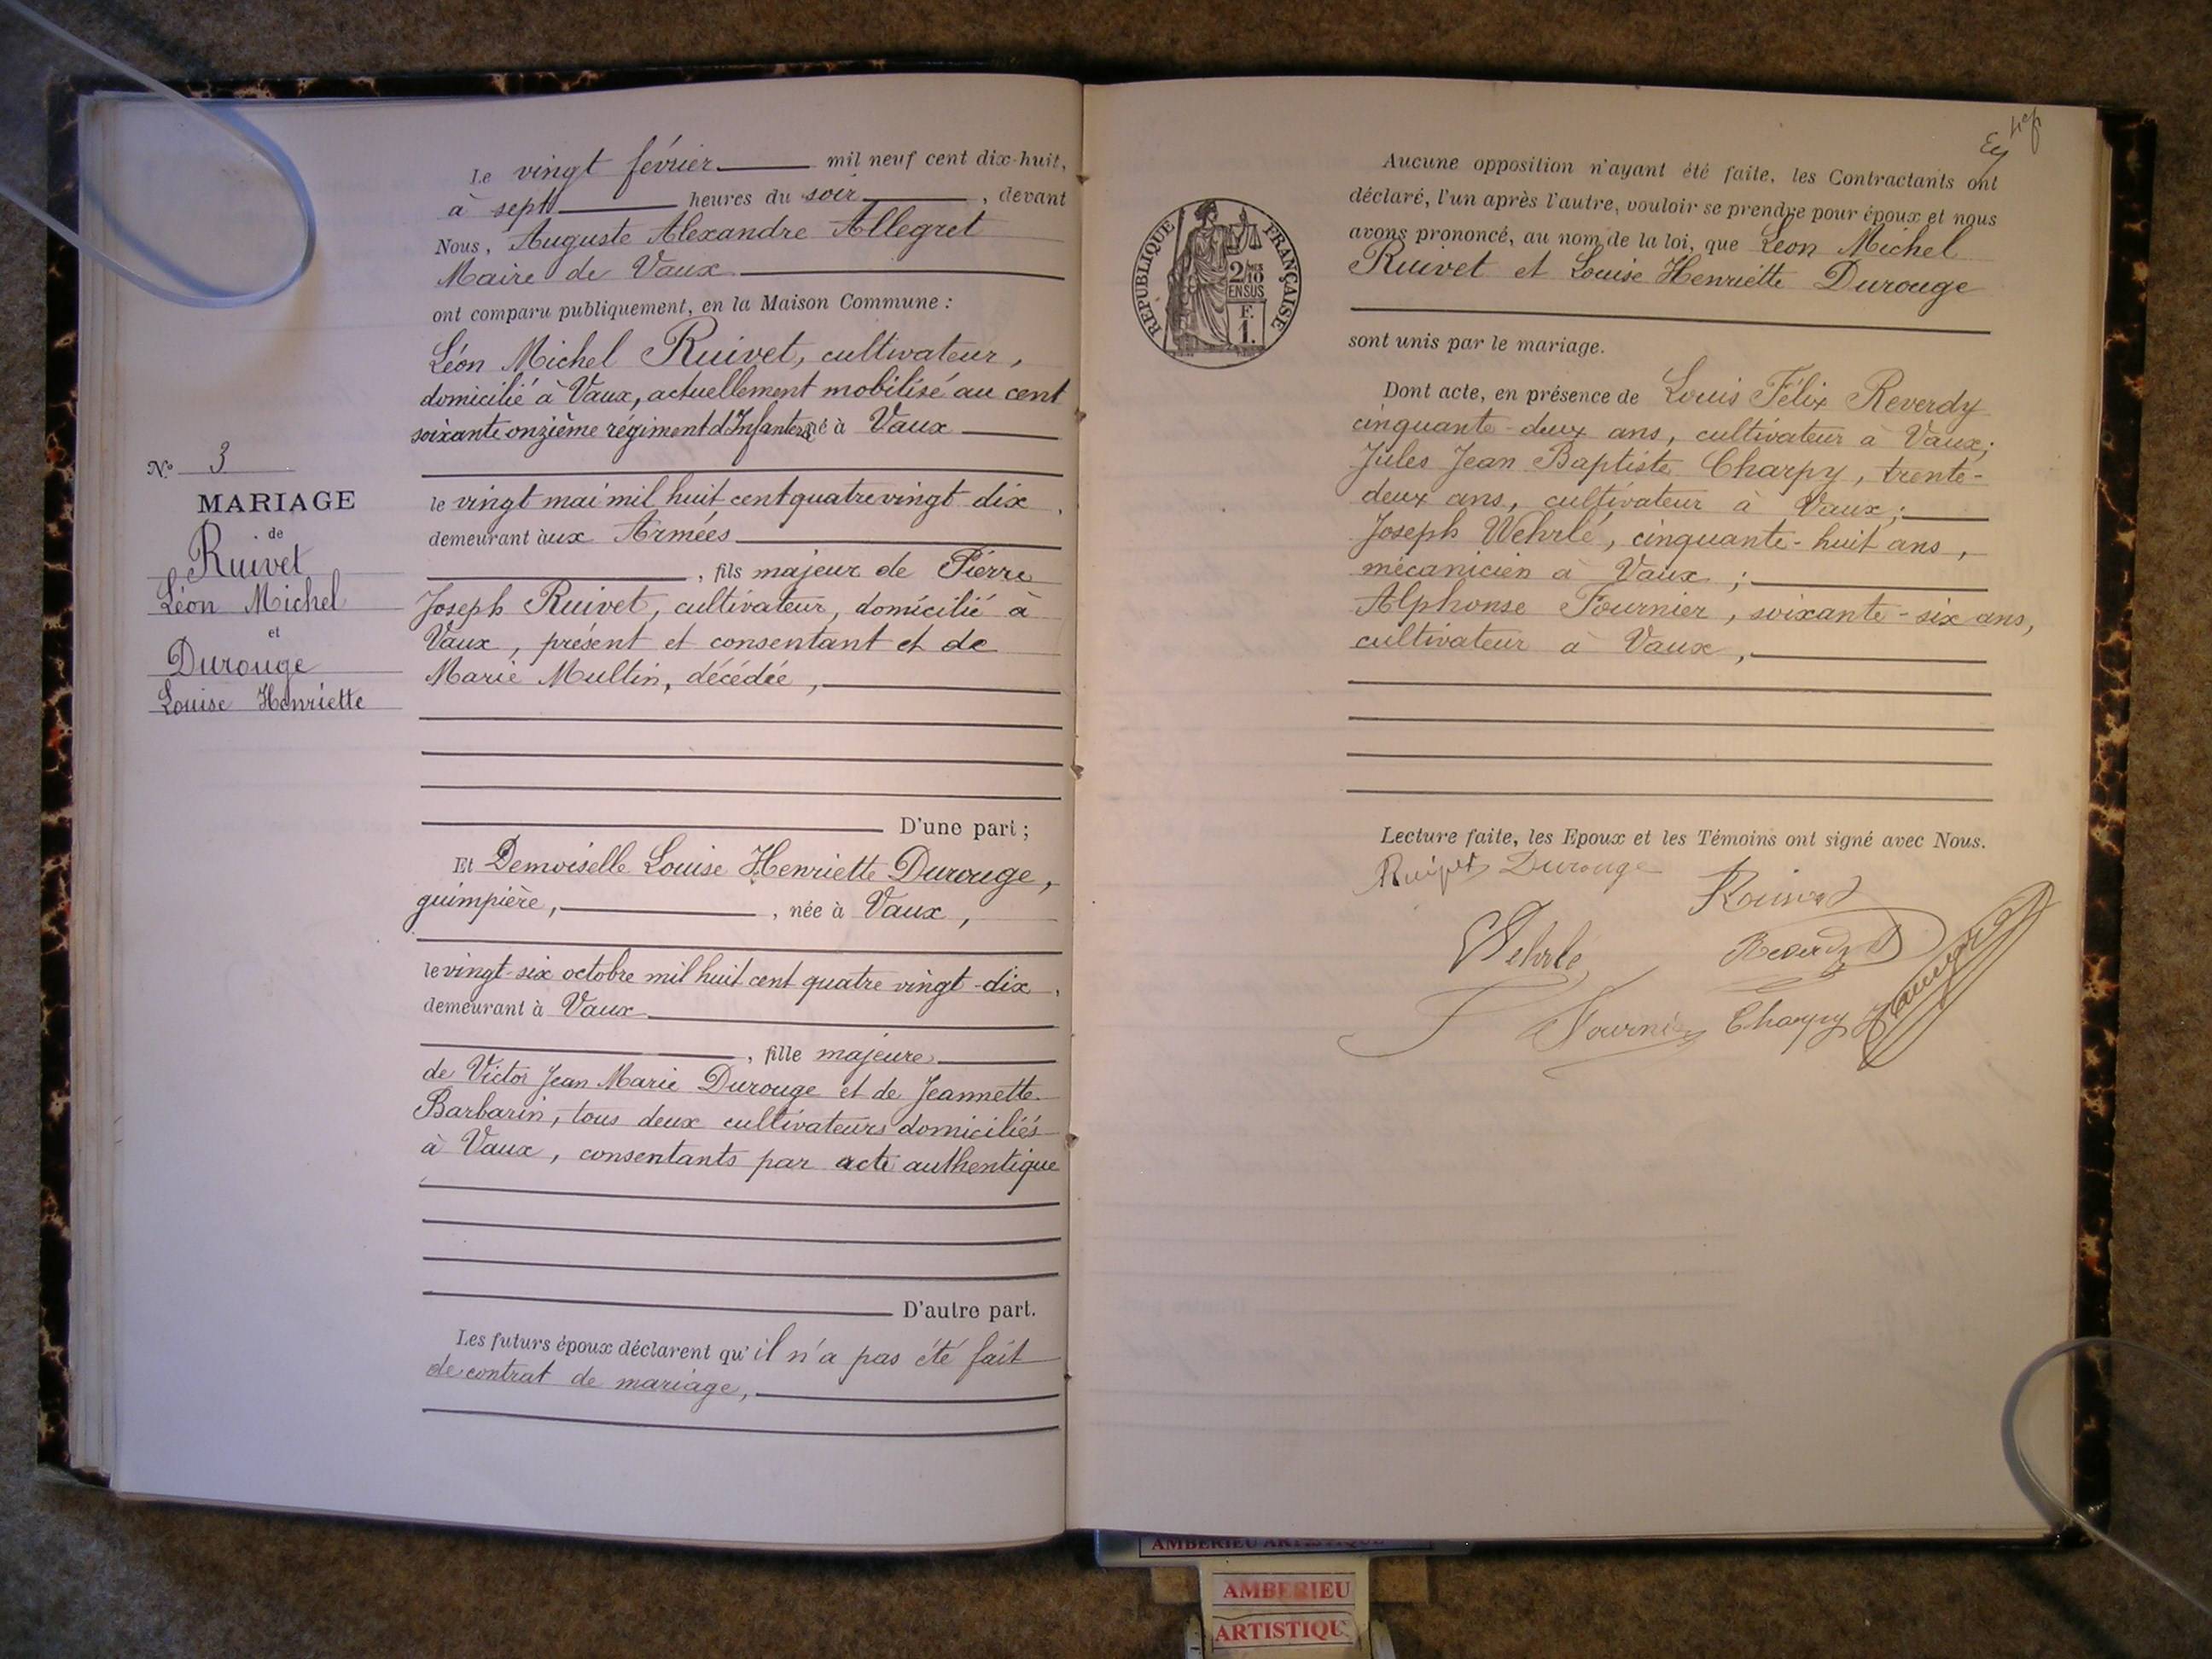 Le vingt février mil neuf cent dix-huit,
à sept heures du soir, devant
Nous, Auguste Alexandre Allegret
Maire de Vaux
ont comparu publiquement, en la Maison Commune :
Léon Michel Ruivet, cultivateur,
domicilié à Vaux, actuellement mobilisé au cent
soixante onzième régiment d'Infanterie né à Vaux
le vingt mai mil huit cent quatre vingt dix,
demeurant aux Armées
, fils majeur de Pierre
Joseph Ruivet, cultivateur, domicilié à
Vaux, présent et consentant et de
Marie Multin, décédée,
D'une part ;
Et Demoiselle Louise Henriette Durouge,
guimpière, , née à Vaux,
le vingt-six octobre mil huit cent quatre vingt-dix,
demeurant à Vaux
, fille majeure
de Victor Jean Marie Durouge et de Jeannette
Barbarin, tous deux cultivateurs domiciliés
à Vaux, consentants par acte authentique
D'autre part.
Les futurs époux déclarent qu'il n'a pas été fait
de contrat de mariage,
N° 3
MARIAGE
de
Ruivet
Léon Michel
et
Durouge
Louise Henriette
REPUBLIQUE FRANÇAISE
2/10 MES
EN SUS
F.
1.
Aucune opposition n'ayant été faite, les Contractants ont
déclaré, l'un après l'autre, vouloir se prendre pour époux et nous
avons prononcé, au nom de la loi, que Léon Michel
Ruivet et Louise Henriette Durouge
sont unis par le mariage.
Dont acte, en présence de Louis Félix Reverdy
cinquante-deux ans, cultivateur à Vaux;
Jules Jean Baptiste Charpy, trente-
deux ans, cultivateur à Vaux;
Joseph Wehrlé, cinquante-huit ans,
mécanicien à Vaux ;
Alphonse Fournier, soixante-six ans,
cultivateur à Vaux,
Lecture faite, les Epoux et les Témoins ont signé avec Nous.
Ruivet Durouge
Ruivet
Wehrlé
Reverdy
Fournier Charpy
AMBERIEU ARTISTIQUE
AMBERIEU
ARTISTIQU